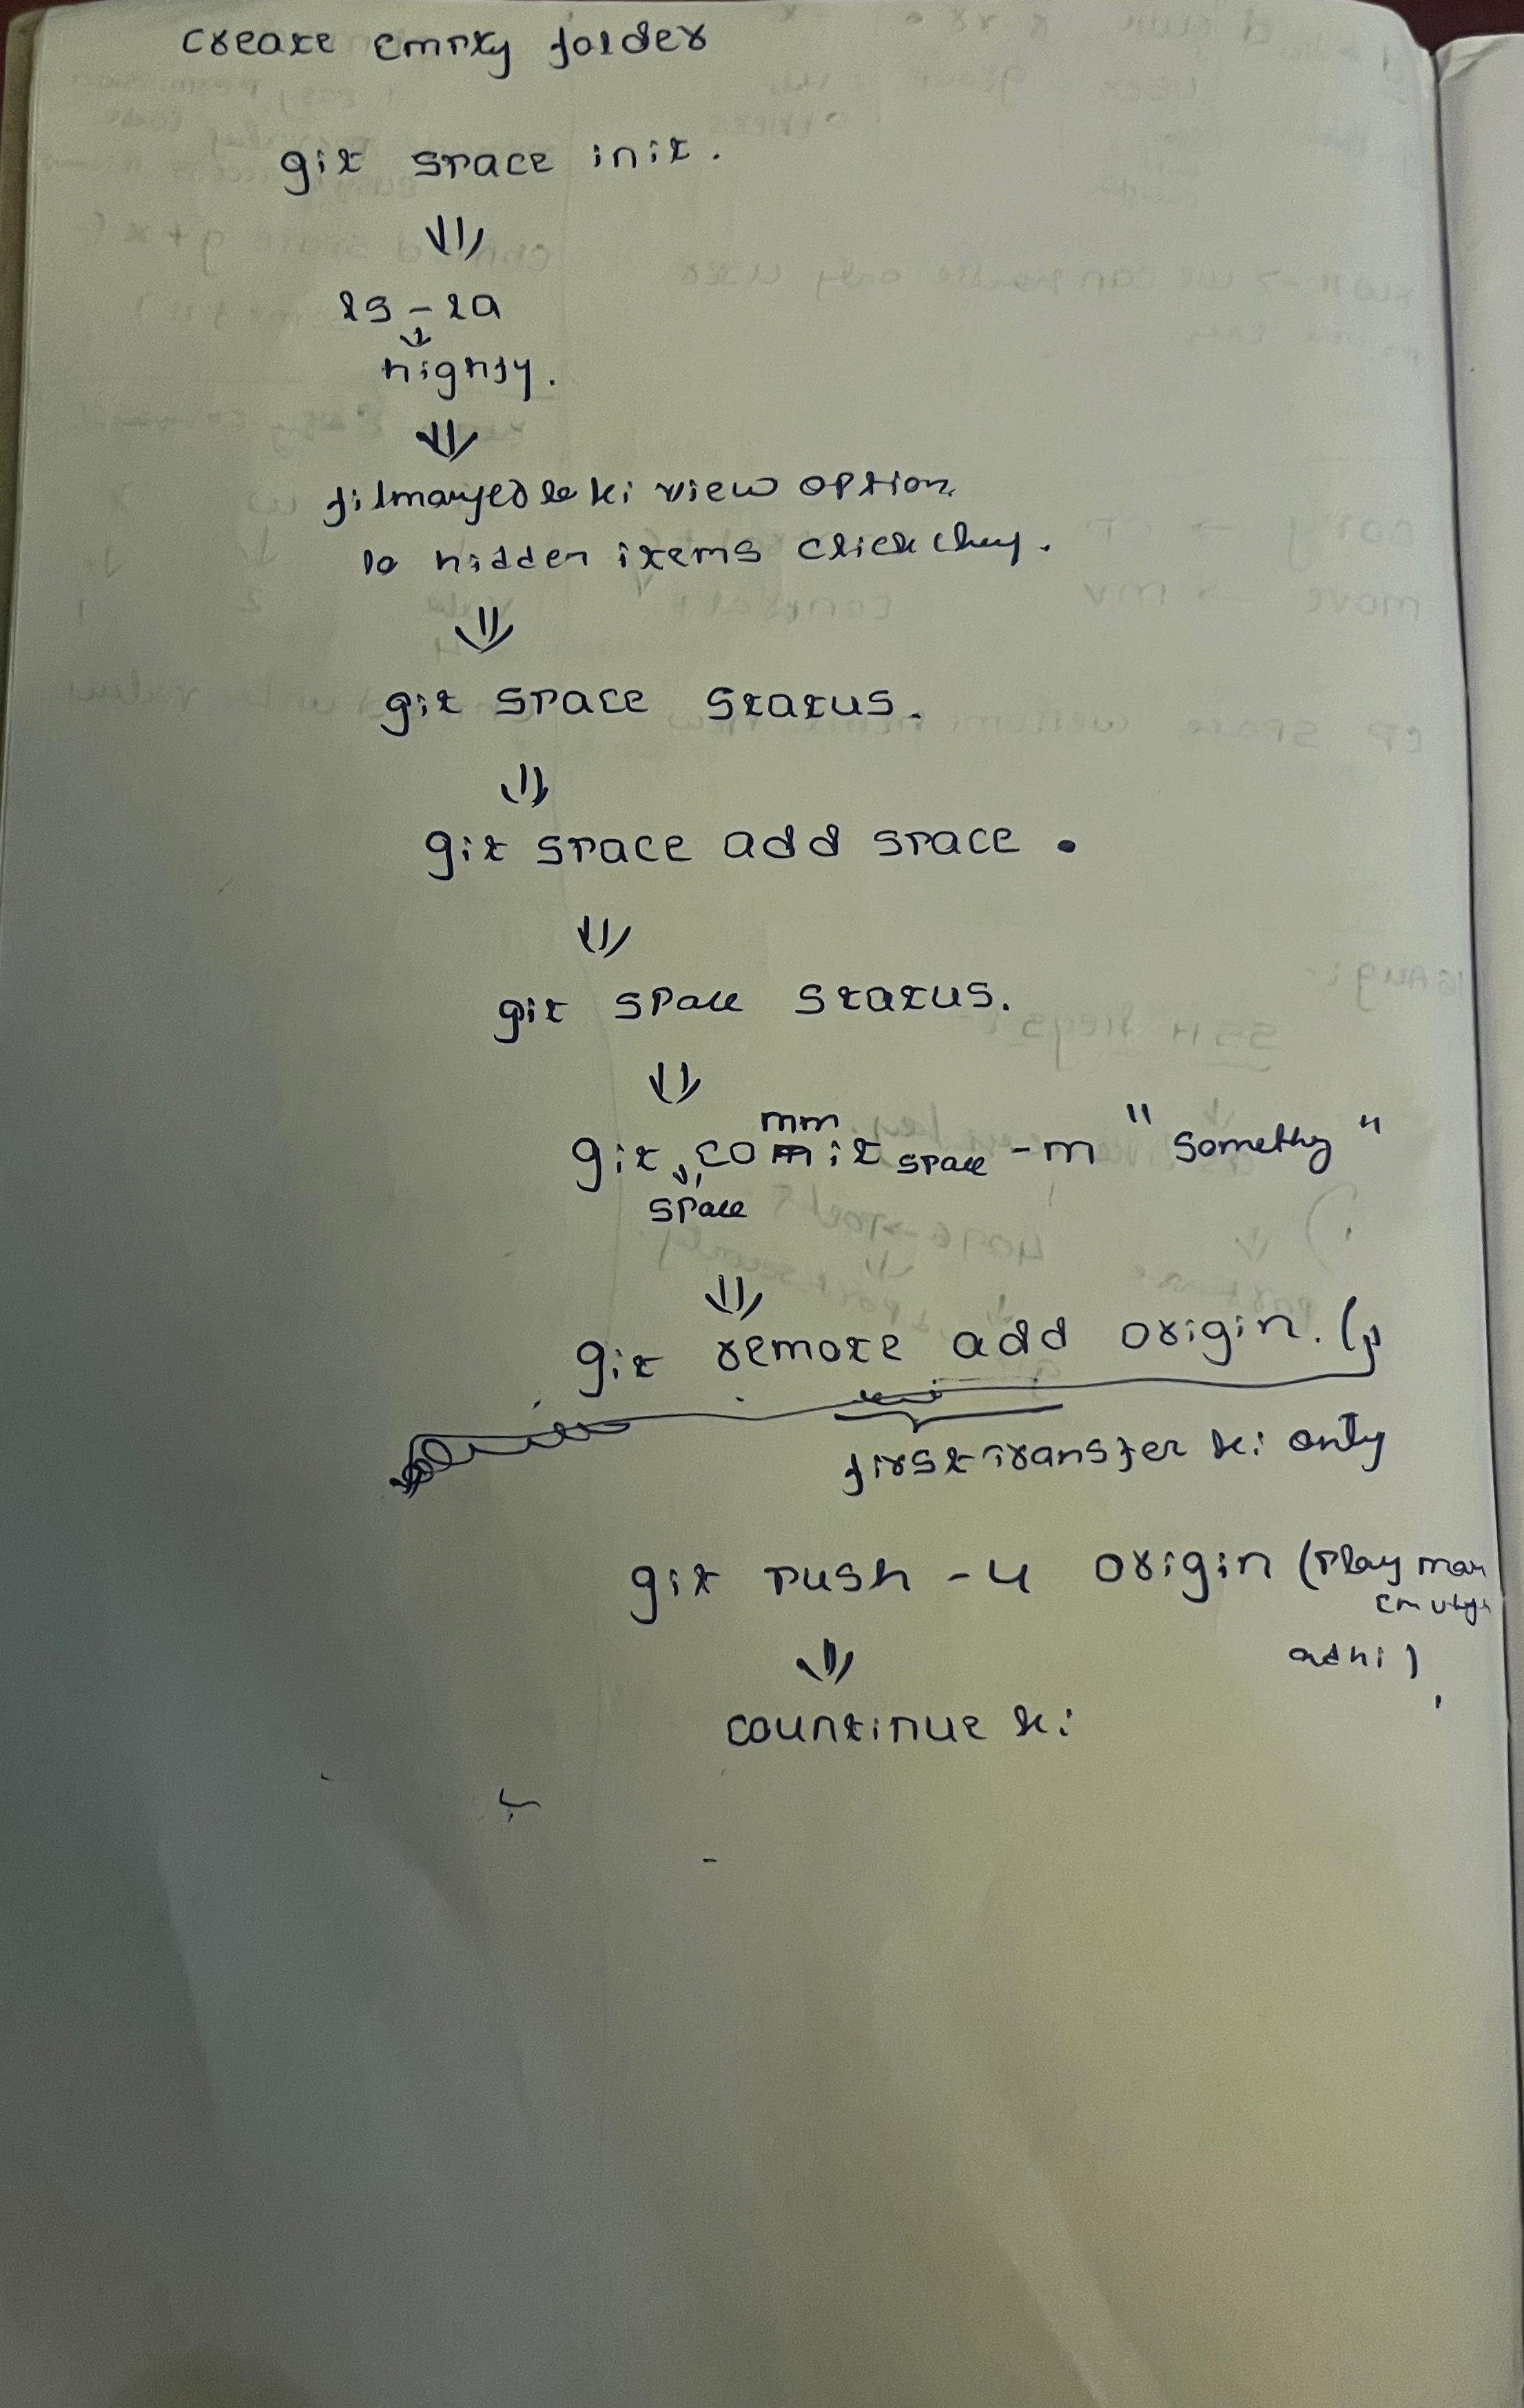 create empty folder
git space init.
ls - la
highfy.
ki view option
lo hidden items click chey.
git space status.
git space add space .
git space status.
git commit space -m "somethg"
mm
space
git remote add origin. (
first transfer ki only
git push -u origin (
adhi)
countinue ki